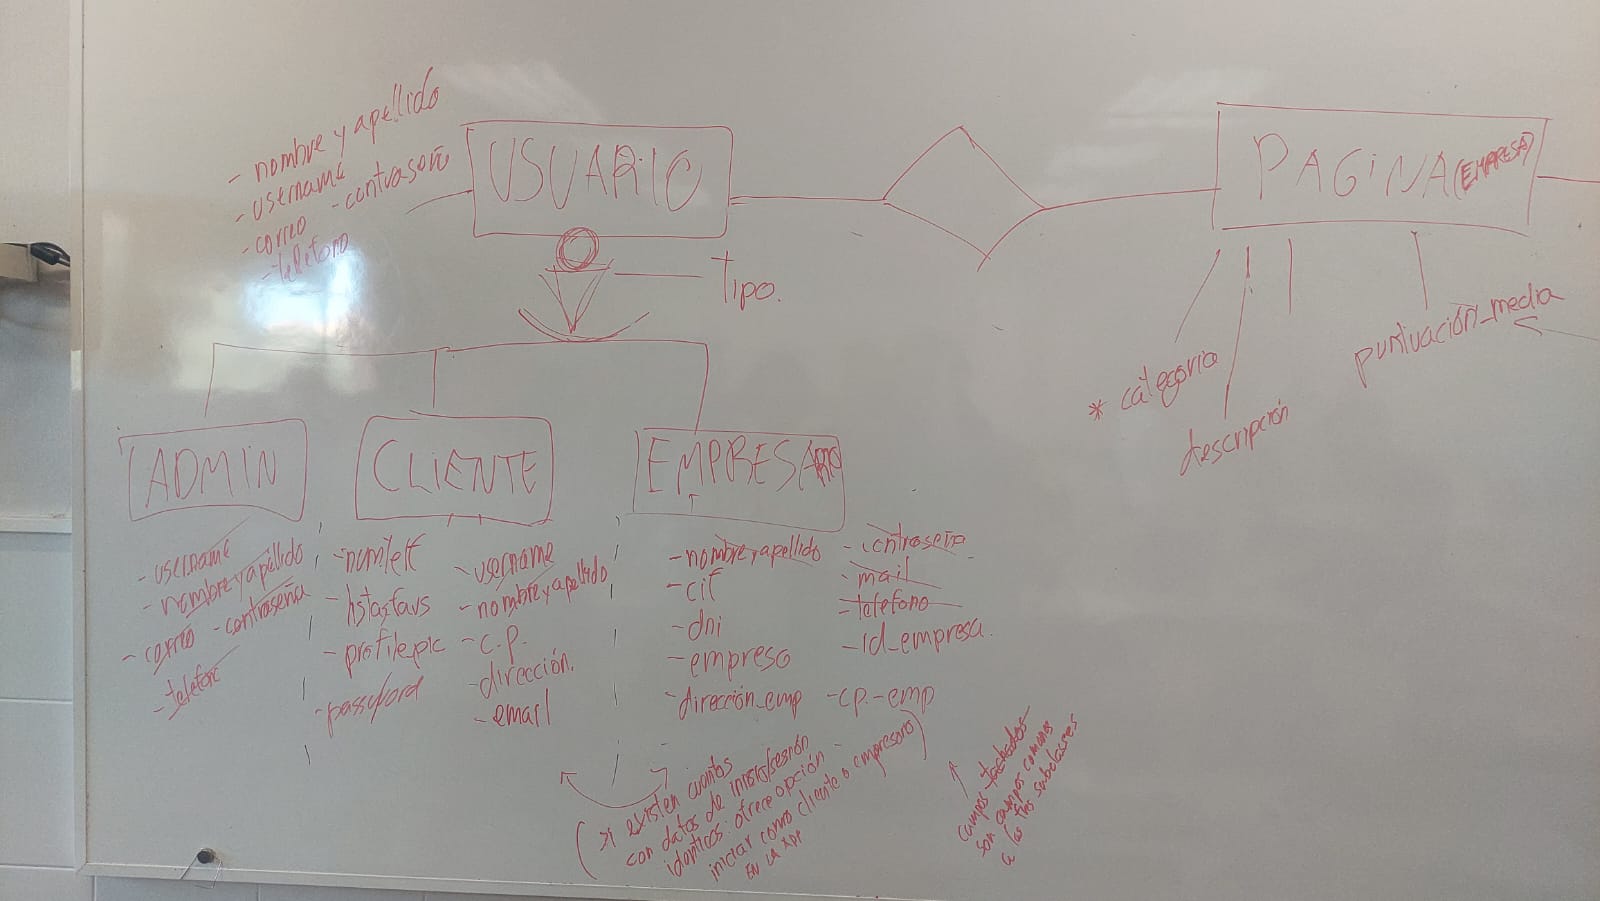 - nombre y apellido
- username
- correo - contraseñ
- telefono
USUARIO
Tipo.
PAGINA (EMPRESA)
* categoria
descripción
puntuación_media
ADMIN
- username
- nombre y apellido
- correo - contraseña
- telefono
CLIENTE
- num telf
- listas favs
- profilepic
- password
- username
- nombre y apellido
- c.p.
- dirección.
- email
EMPRESARIO
- nombre y apellido
- cif
- dni
- empresa
- dirección_emp - cp.-emp
- contraseña
- mail
- telefono
- id_empresa.
(si existen cuentas
con datos de inicio/sesión
identicos: ofrece opción -
iniciar como cliente o empresario)
EN LA APP
campos tachados
son campos comunes
a las tres subclases